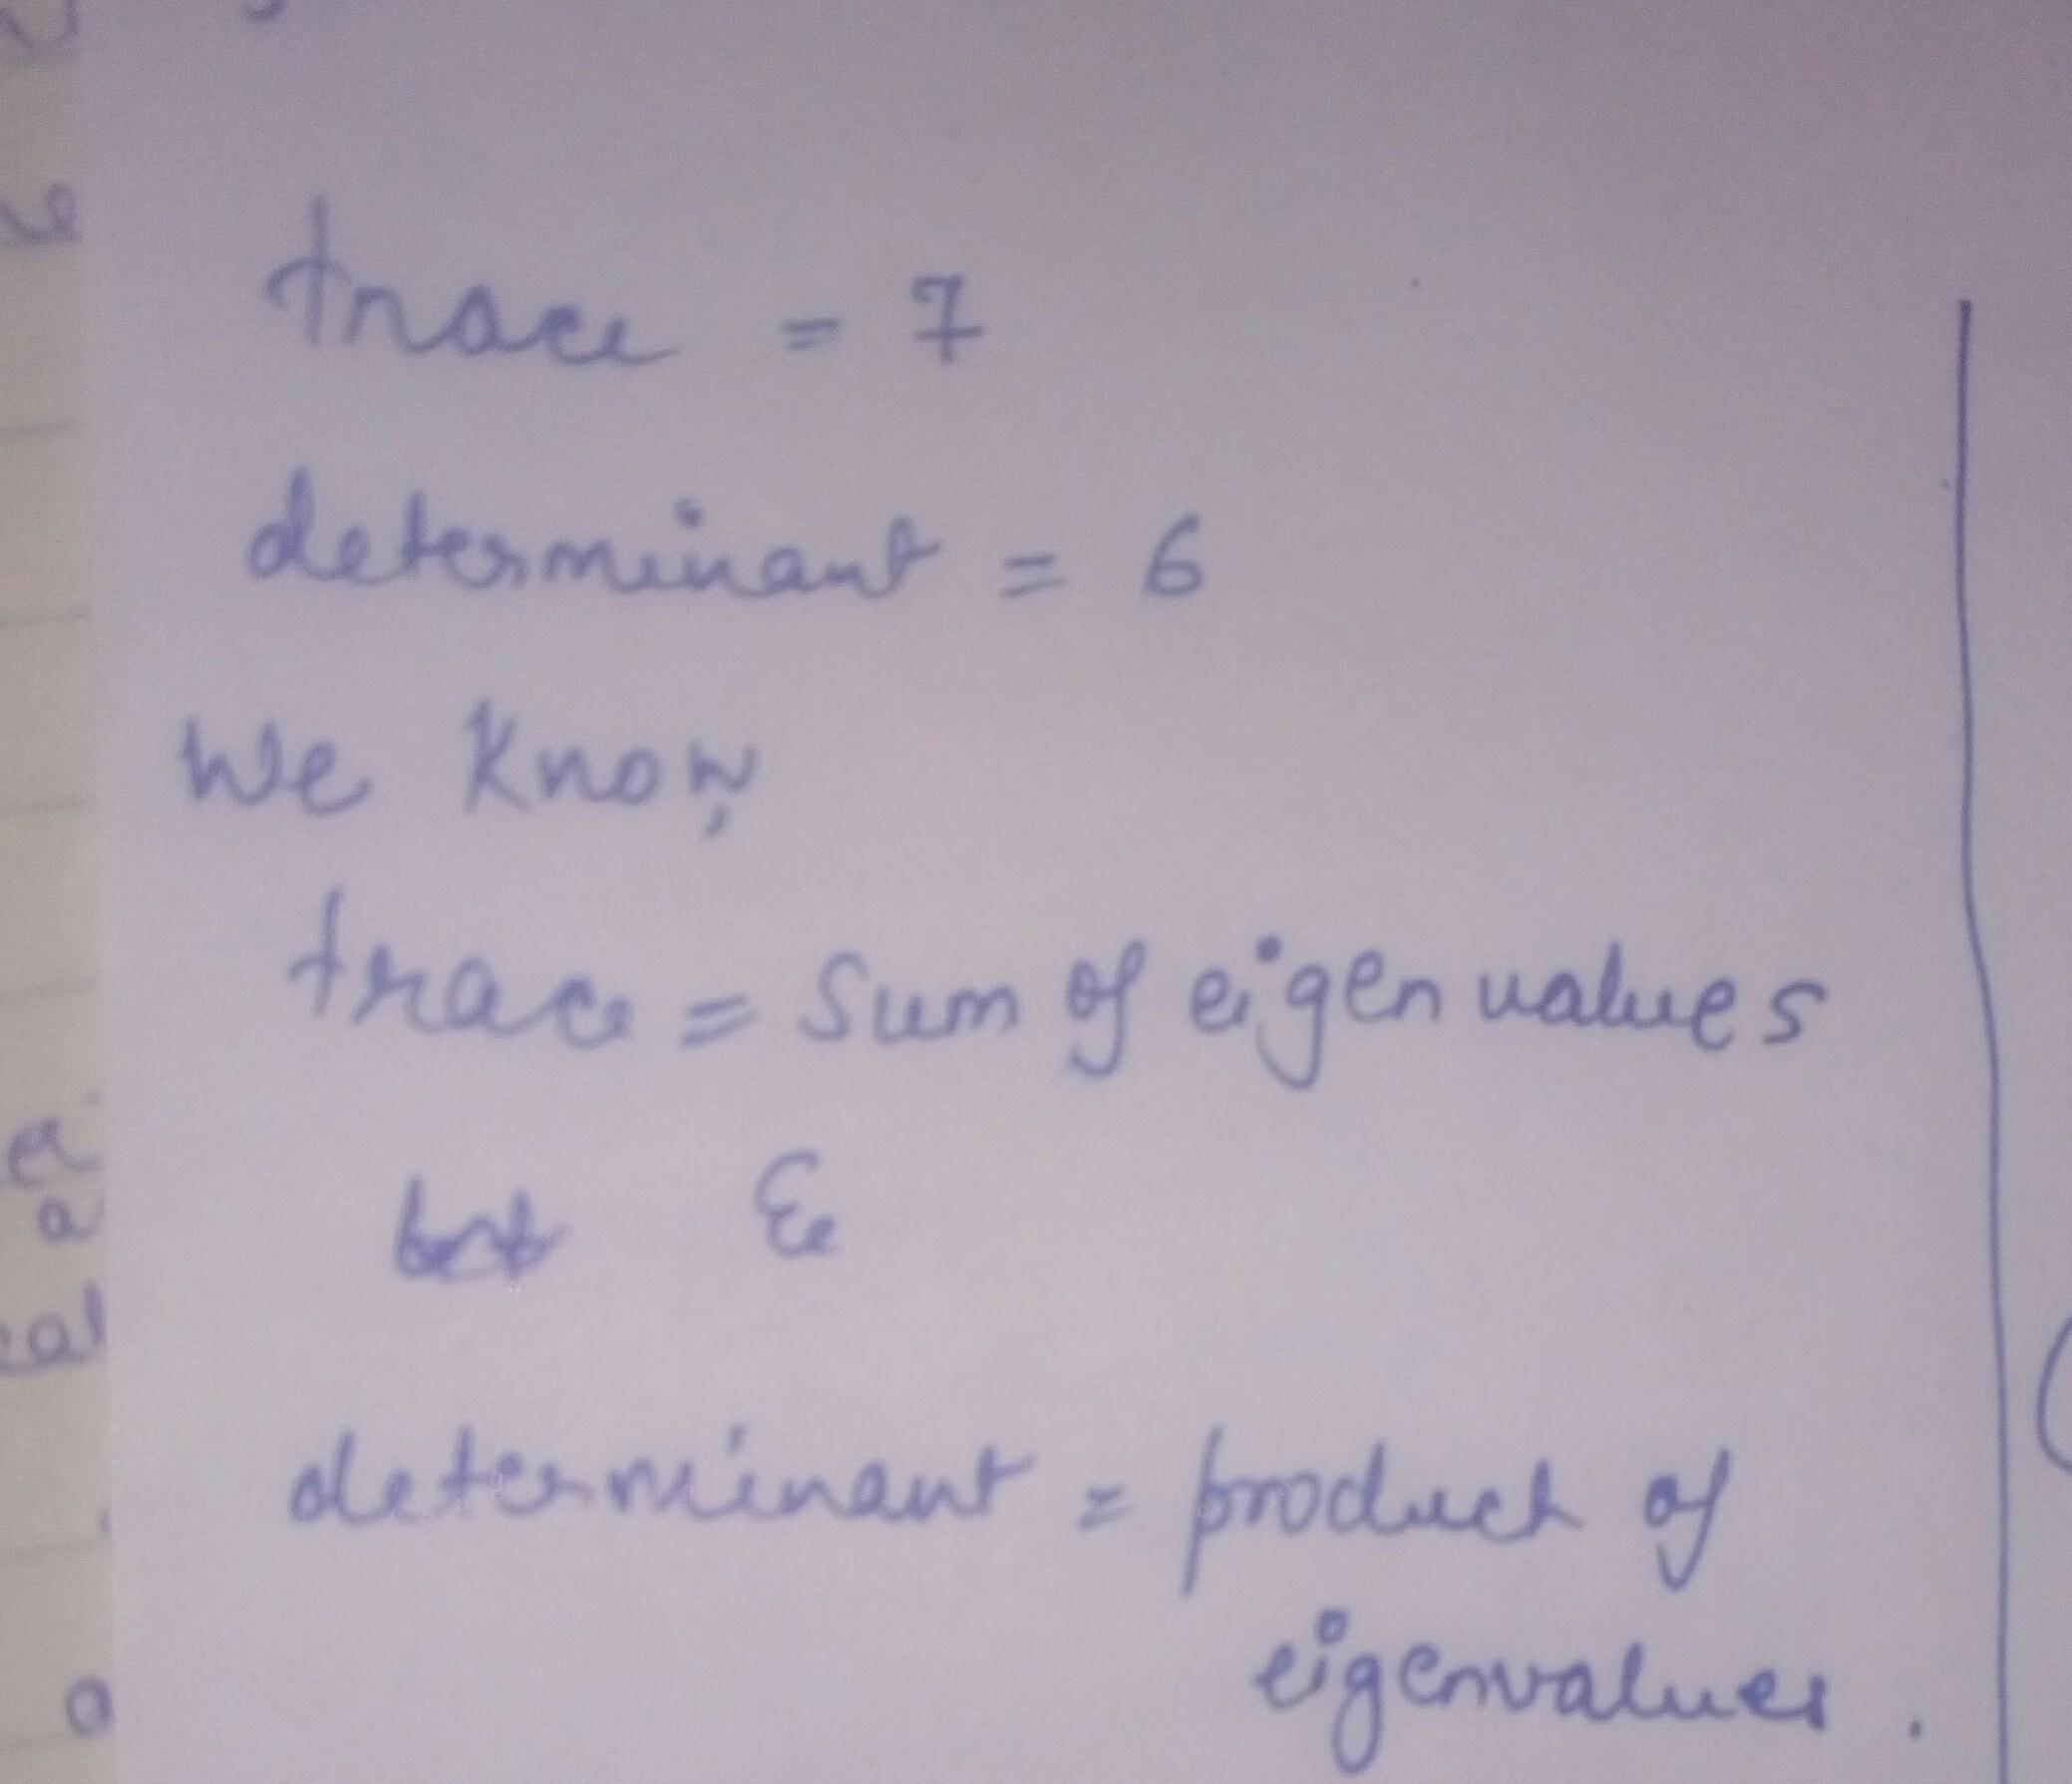 trace = 7
determinant = 6
We Know,
trace = Sum of eigen values
&
determinant = product of
eigenvalues.